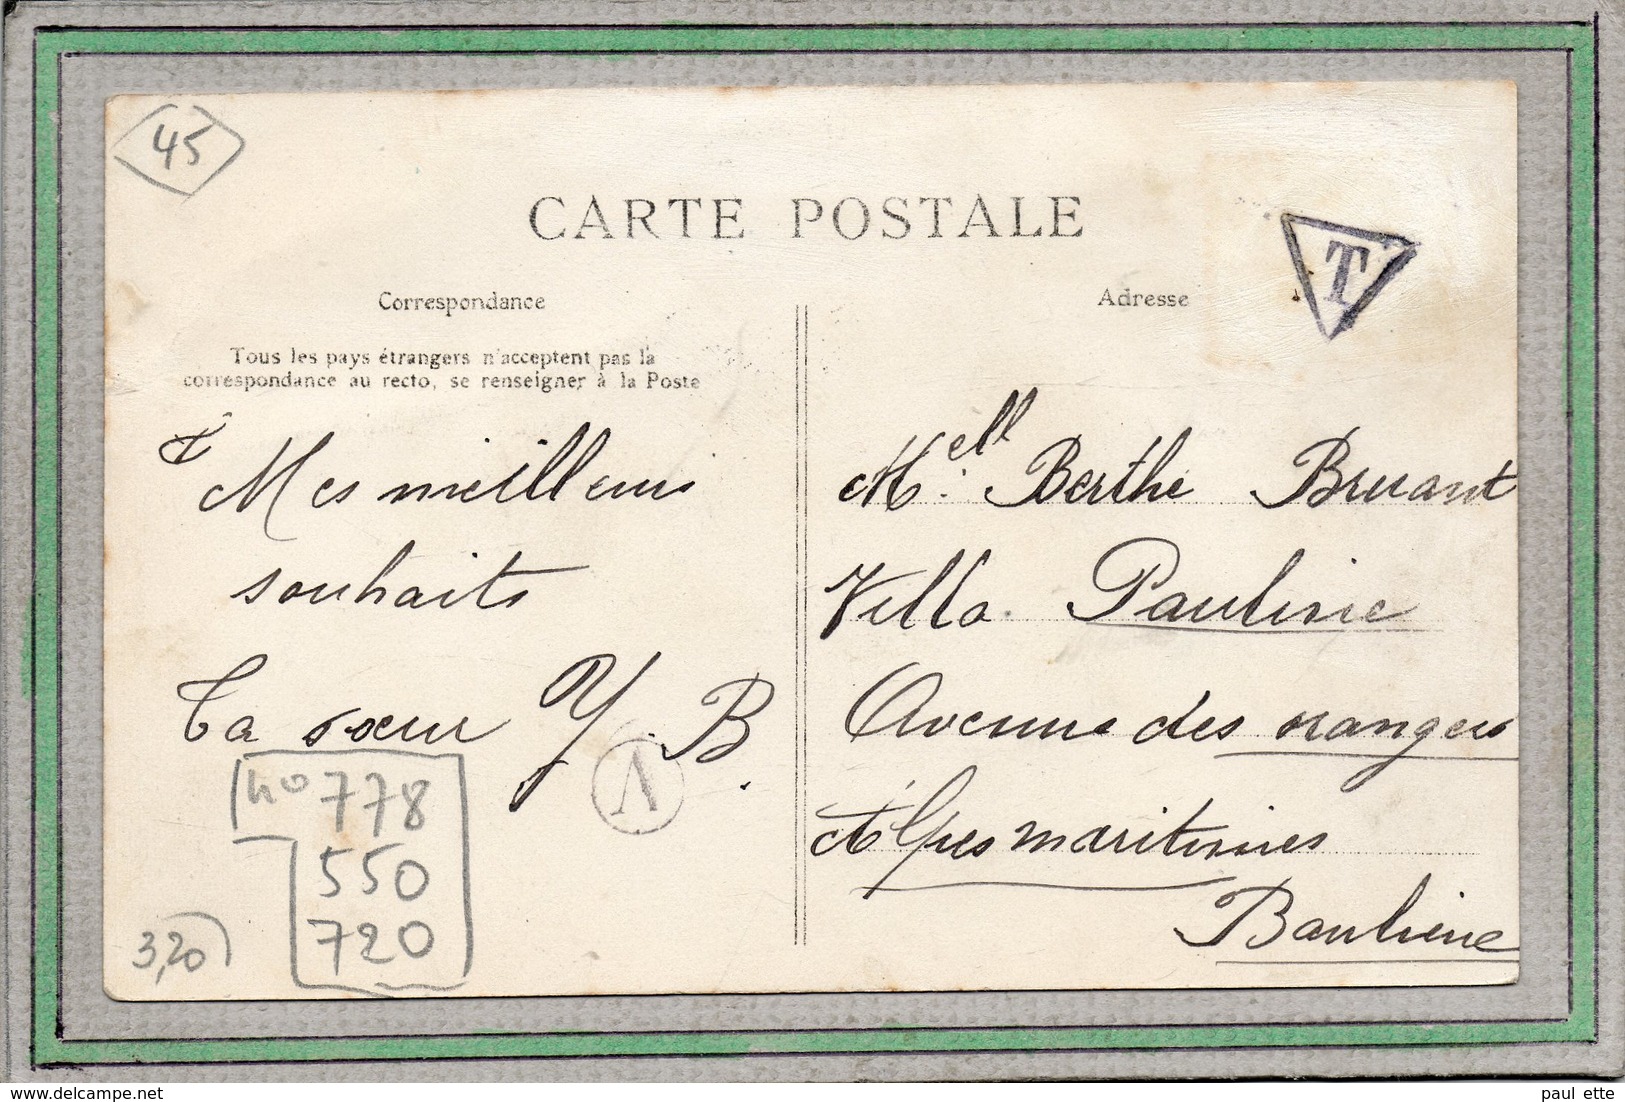 45
CARTE POSTALE
T
Correspondance
Adresse
Tous les pays étrangers n'acceptent pas la
correspondance au recto, se renseigner à la Poste
Mes meilleurs
souhaits
Ta sœur Y. B.
A
Mell. Berthe Bruant
Villa Pauline
Avenue des orangers
Alpes maritimes
Baulieue
no 778
550
720
3,20
paul ette